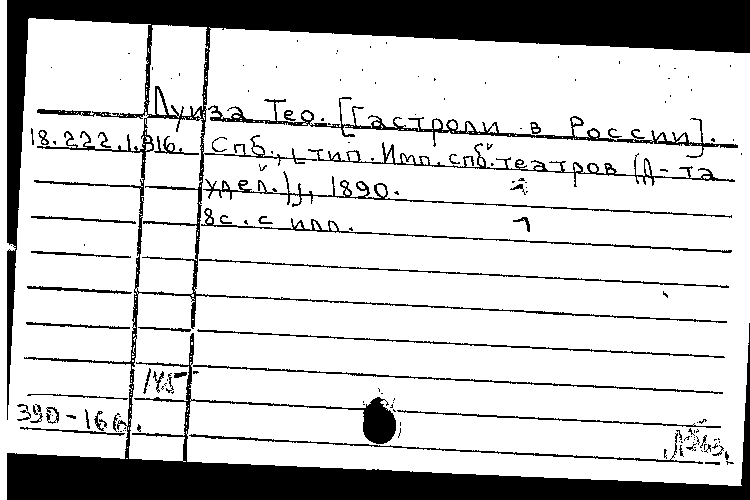 Луиза Тео. [Гастроли в России].
18.222.1.316. Спб., [тип. Имп. спб. театров (Д-та
удел.)], 1890.
8с. с илл.
145
390-166.